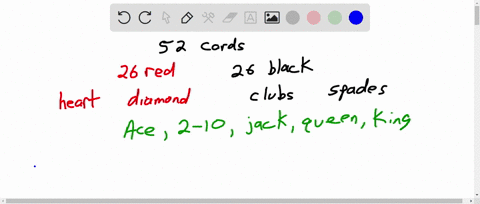 52 cords
26 red 26 black
heart diamond clubs spades
Ace, 2-10, jack, queen, King